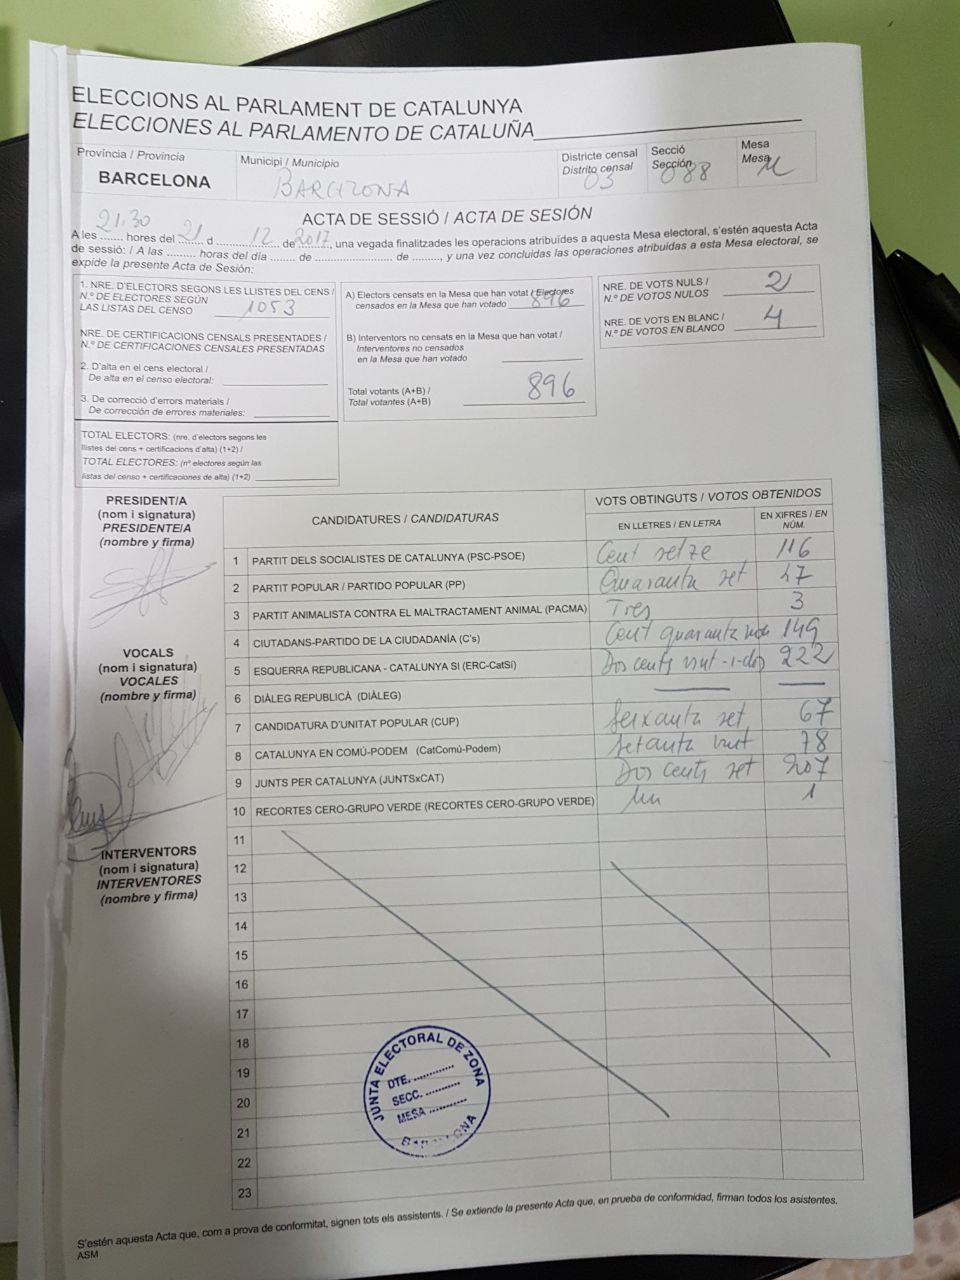 ELECCIONS AL PARLAMENT DE CATALUNYA
ELECCIONES AL PARLAMENTO DE CATALUÑA
Província / Provincia
BARCELONA
Municipi / Municipio
BARCELONA
Districte censal
Distrito censal
03
Secció
Sección
088
Mesa
Mesa
U
ACTA DE SESSIÓ / ACTA DE SESIÓN
21:30 21 12 2017
A les ........ hores del ........ d ................. de ........, una vegada finalitzades les operacions atribuïdes a aquesta Mesa electoral, s'estén aquesta Acta
de sessió: / A las ......... horas del día ....... de .................... de ........, y una vez concluidas las operaciones atribuidas a esta Mesa electoral, se
expide la presente Acta de Sesión:
1. NRE. D'ELECTORS SEGONS LES LLISTES DEL CENS /
N.º DE ELECTORES SEGÚN
LAS LISTAS DEL CENSO 1053
NRE. DE CERTIFICACIONS CENSALS PRESENTADES /
N.º DE CERTIFICACIONES CENSALES PRESENTADAS
2. D'alta en el cens electoral /
De alta en el censo electoral:
3. De correcció d'errors materials /
De corrección de errores materiales:
TOTAL ELECTORS: (nre. d'electors segons les
llistes del cens + certificacions d'alta) (1+2) /
TOTAL ELECTORES: (nº electores según las
listas del censo + certificaciones de alta) (1+2)
A) Electors censats en la Mesa que han votat / Electores
censados en la Mesa que han votado 896
B) Interventors no censats en la Mesa que han votat /
Interventores no censados
en la Mesa que han votado
Total votants (A+B) /
Total votantes (A+B) 896
NRE. DE VOTS NULS /
N.º DE VOTOS NULOS 2
NRE. DE VOTS EN BLANC /
N.º DE VOTOS EN BLANCO 4
PRESIDENT/A
(nom i signatura)
PRESIDENTE/A
(nombre y firma)
VOCALS
(nom i signatura)
VOCALES
(nombre y firma)
INTERVENTORS
(nom i signatura)
INTERVENTORES
(nombre y firma)
CANDIDATURES / CANDIDATURAS
VOTS OBTINGUTS / VOTOS OBTENIDOS
EN LLETRES / EN LETRA
EN XIFRES / EN NÚM.
1 PARTIT DELS SOCIALISTES DE CATALUNYA (PSC-PSOE) Cent setze 116
2 PARTIT POPULAR / PARTIDO POPULAR (PP) Quaranta set 47
3 PARTIT ANIMALISTA CONTRA EL MALTRACTAMENT ANIMAL (PACMA) Tres 3
4 CIUTADANS-PARTIDO DE LA CIUDADANÍA (C's) Cent quaranta nou 149
5 ESQUERRA REPUBLICANA - CATALUNYA SI (ERC-CatSí) Dos cents vint-i-dos 222
6 DIÀLEG REPUBLICÀ (DIÀLEG)
7 CANDIDATURA D'UNITAT POPULAR (CUP) Seixanta set 67
8 CATALUNYA EN COMÚ-PODEM (CatComú-Podem) Setanta vuit 78
9 JUNTS PER CATALUNYA (JUNTSxCAT) Dos cents set 207
10 RECORTES CERO-GRUPO VERDE (RECORTES CERO-GRUPO VERDE) Un 1
11
12
13
14
15
16
17
18
19
20
21
22
23
JUNTA ELECTORAL DE ZONA
DTE. ............
SECC. ..........
MESA ...........
S'estén aquesta Acta que, com a prova de conformitat, signen tots els assistents. / Se extiende la presente Acta que, en prueba de conformidad, firman todos los asistentes.
ASM